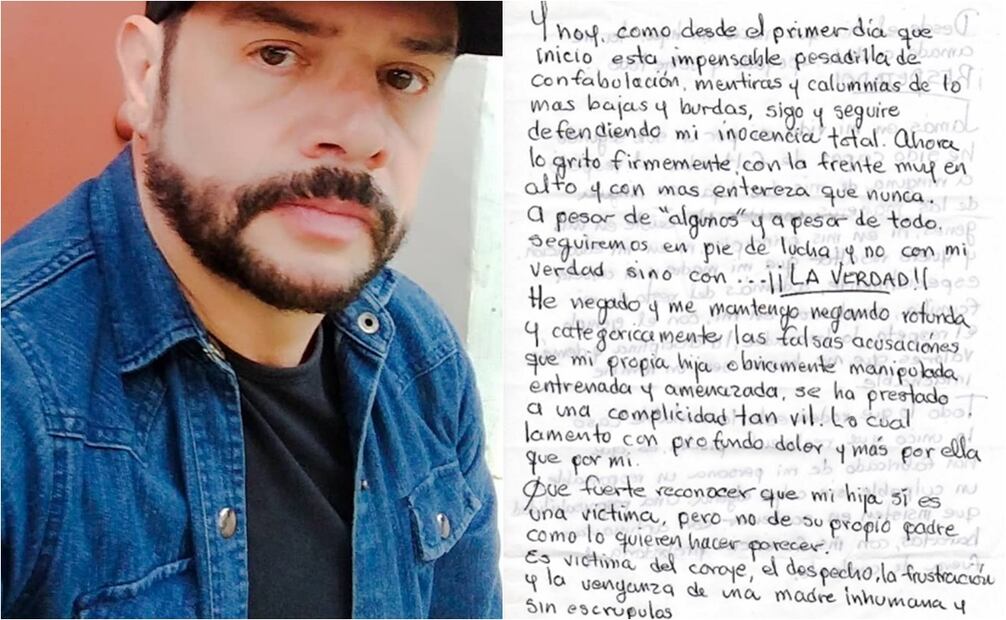 Y hoy, como desde el primer día que
inicio esta impensable pesadilla de
confabulación, mentiras y calumnias de lo
mas bajas y burdas, sigo y seguire
defendiendo mi inocencia total. Ahora
lo grito firmemente, con la frente muy en
alto y con mas entereza que nunca.
A pesar de "algunos" y a pesar de todo,
seguiremos en pie de lucha y no con mi
verdad sino con...¡¡LA VERDAD!!
He negado y me mantengo negando rotunda
y categoricamente las falsas acusaciónes
que mi propia hija obviamente manipulada
entrenada y amenazada, se ha prestado
a una complicidad tan vil. Lo cual
lamento con profundo dolor y más por ella
que por mi.
Que fuerte reconocer que mi hija sí es
una victima, pero no de su propio padre
como lo quieren hacer parecer.
Es victima del coraje, el despecho, la frustración
y la venganza de una madre inhumana y
sin escrupulos